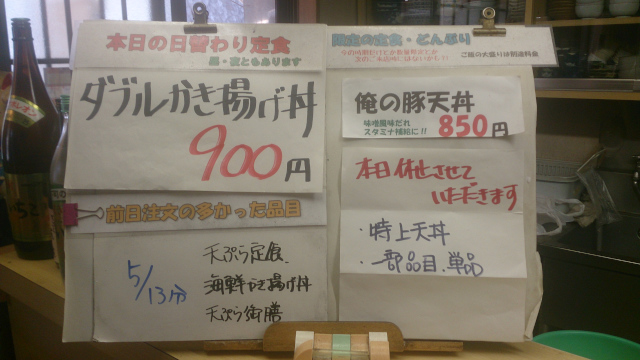 本日の日替わり定食
昼・夜ともあります
ダブルかき揚げ丼
900円
前日注文の多かった品目
5/13分
天ぷら定食
海鮮かき揚げ丼
天ぷら御膳
限定の定食・どんぶり
ご飯の大盛りは別途料金
俺の豚天丼
味噌風味だれ
スタミナ補給に!! 850円
本日休止させて
いただきます
・特上天丼
・一部品目、単品